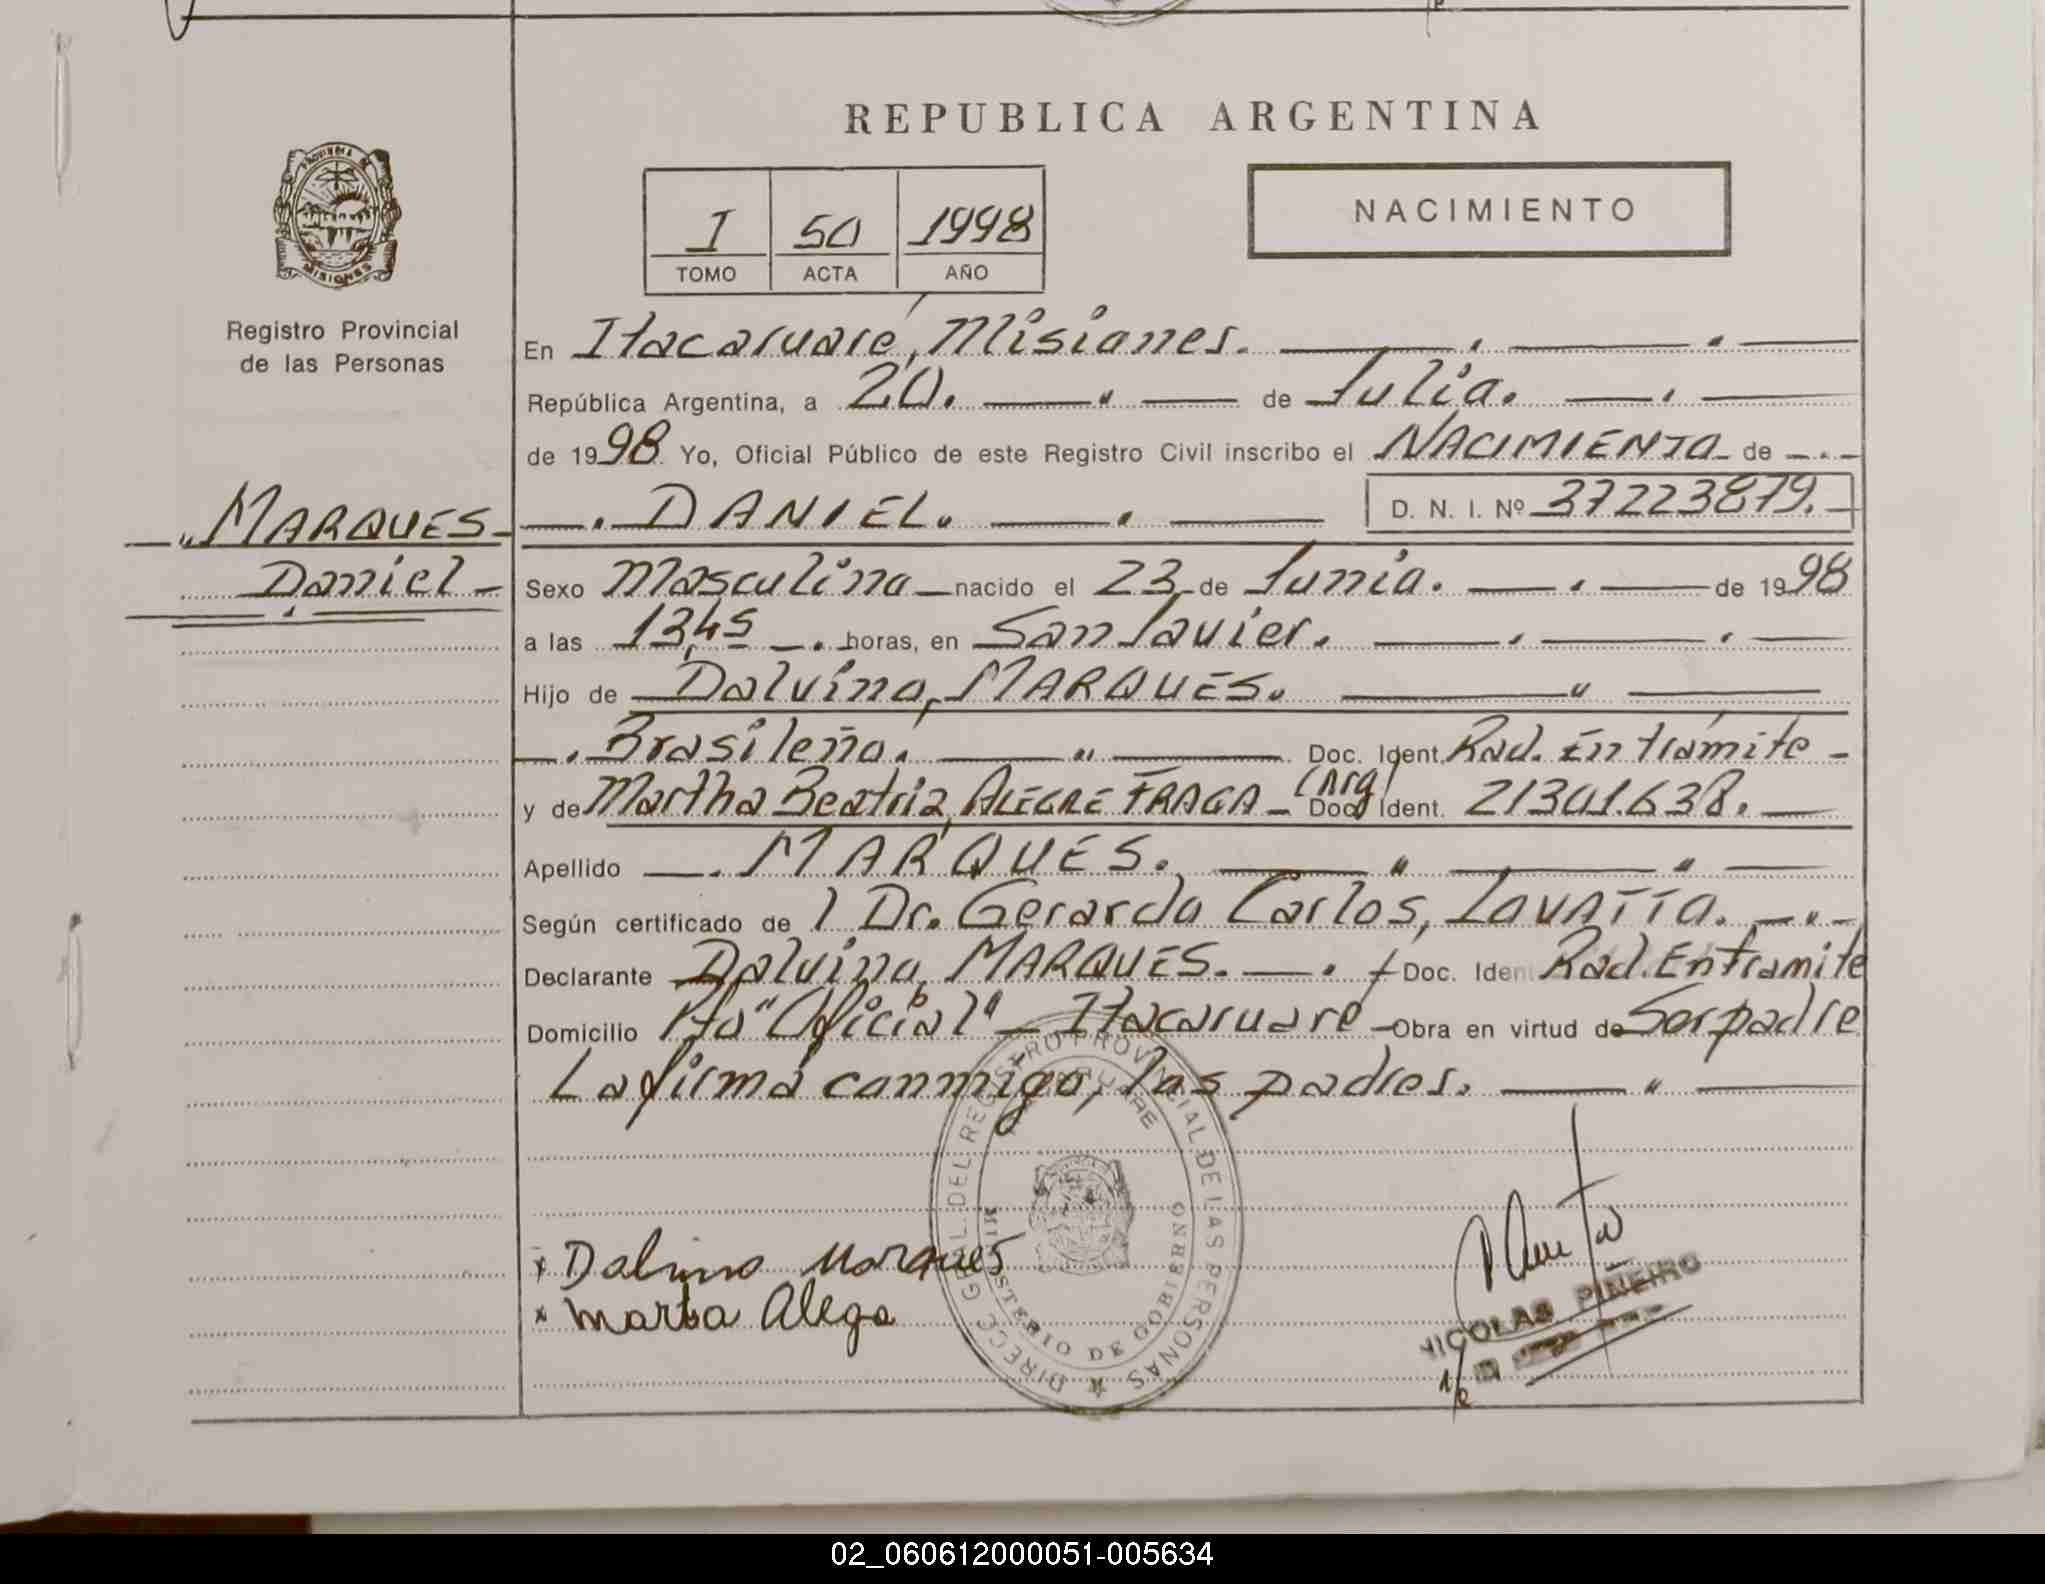 REPUBLICA ARGENTINA
PROVINCIA DE MISIONES
I 50 1998
TOMO ACTA AÑO
NACIMIENTO
Registro Provincial
de las Personas
MARQUES
Daniel
En Itacaruaré, Misiones.
República Argentina, a 20. de Julio.
de 1998 Yo, Oficial Público de este Registro Civil inscribo el NACIMIENTO de
DANIEL. D. N. I. Nº 37223879.
Sexo Masculino nacido el 23 de Junio. de 1998
a las 13,45 horas, en San Javier.
Hijo de Dalvino, MARQUES.
Brasileño. Doc. Ident. Rad. En trámite
y de Martha Beatriz, ALEGRE FRAGA (Arg) Doc. Ident. 21301.638.
Apellido MARQUES.
Según certificado de 1 Dr. Gerardo Carlos, ZAVATTA.
Declarante Dalvino, MARQUES. Doc. Iden Rad. En tramite
Domicilio "Oficial" Itacaruaré Obra en virtud de Ser padre
La firma conmigo, los padres.
DIRECC GRL. DEL REGISTRO PROVINCIAL DE LAS PERSONAS
MINISTERIO DE GOBIERNO
x Dalvino Marques
x Marta Alege
NICOLAS PIÑEIRO
02_060612000051-005634